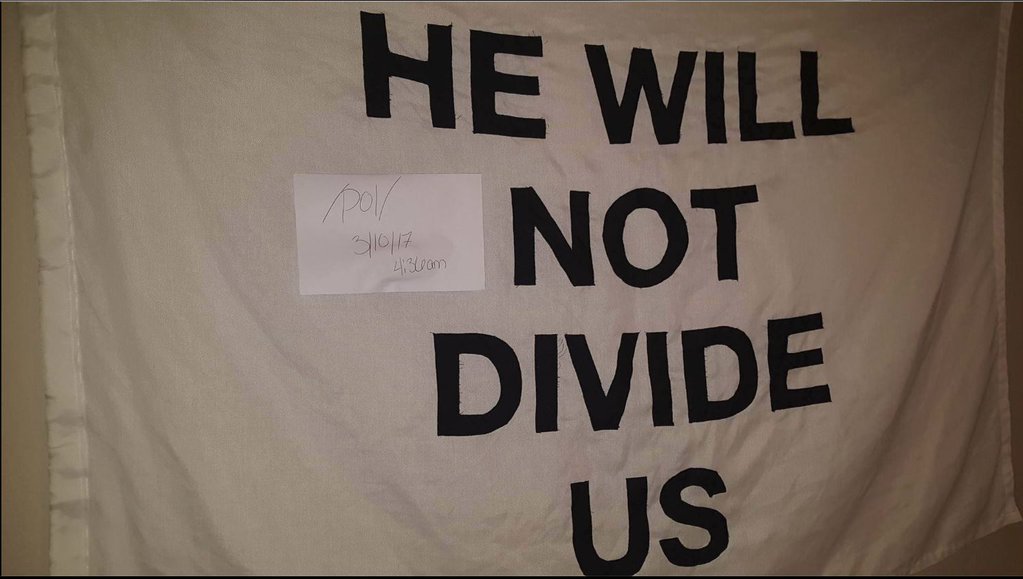 HE WILL
NOT
DIVIDE
US
/pol/
3/10/17
4:36am